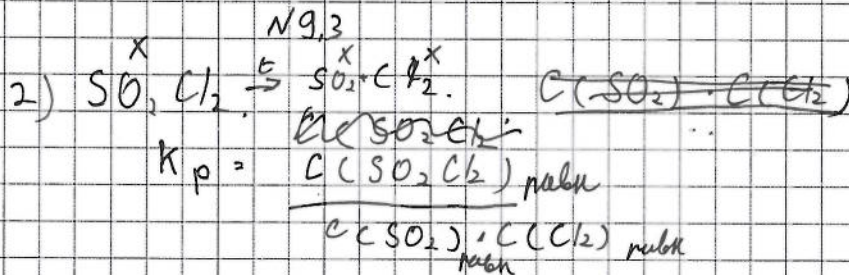 N 9,3
x x x
2) SO2Cl2 →t SO2 + Cl2. C(SO2) · C(Cl2)
C(SO2Cl2
Kp = C(SO2Cl2) равн
C(SO2)равн · C(Cl2) равн